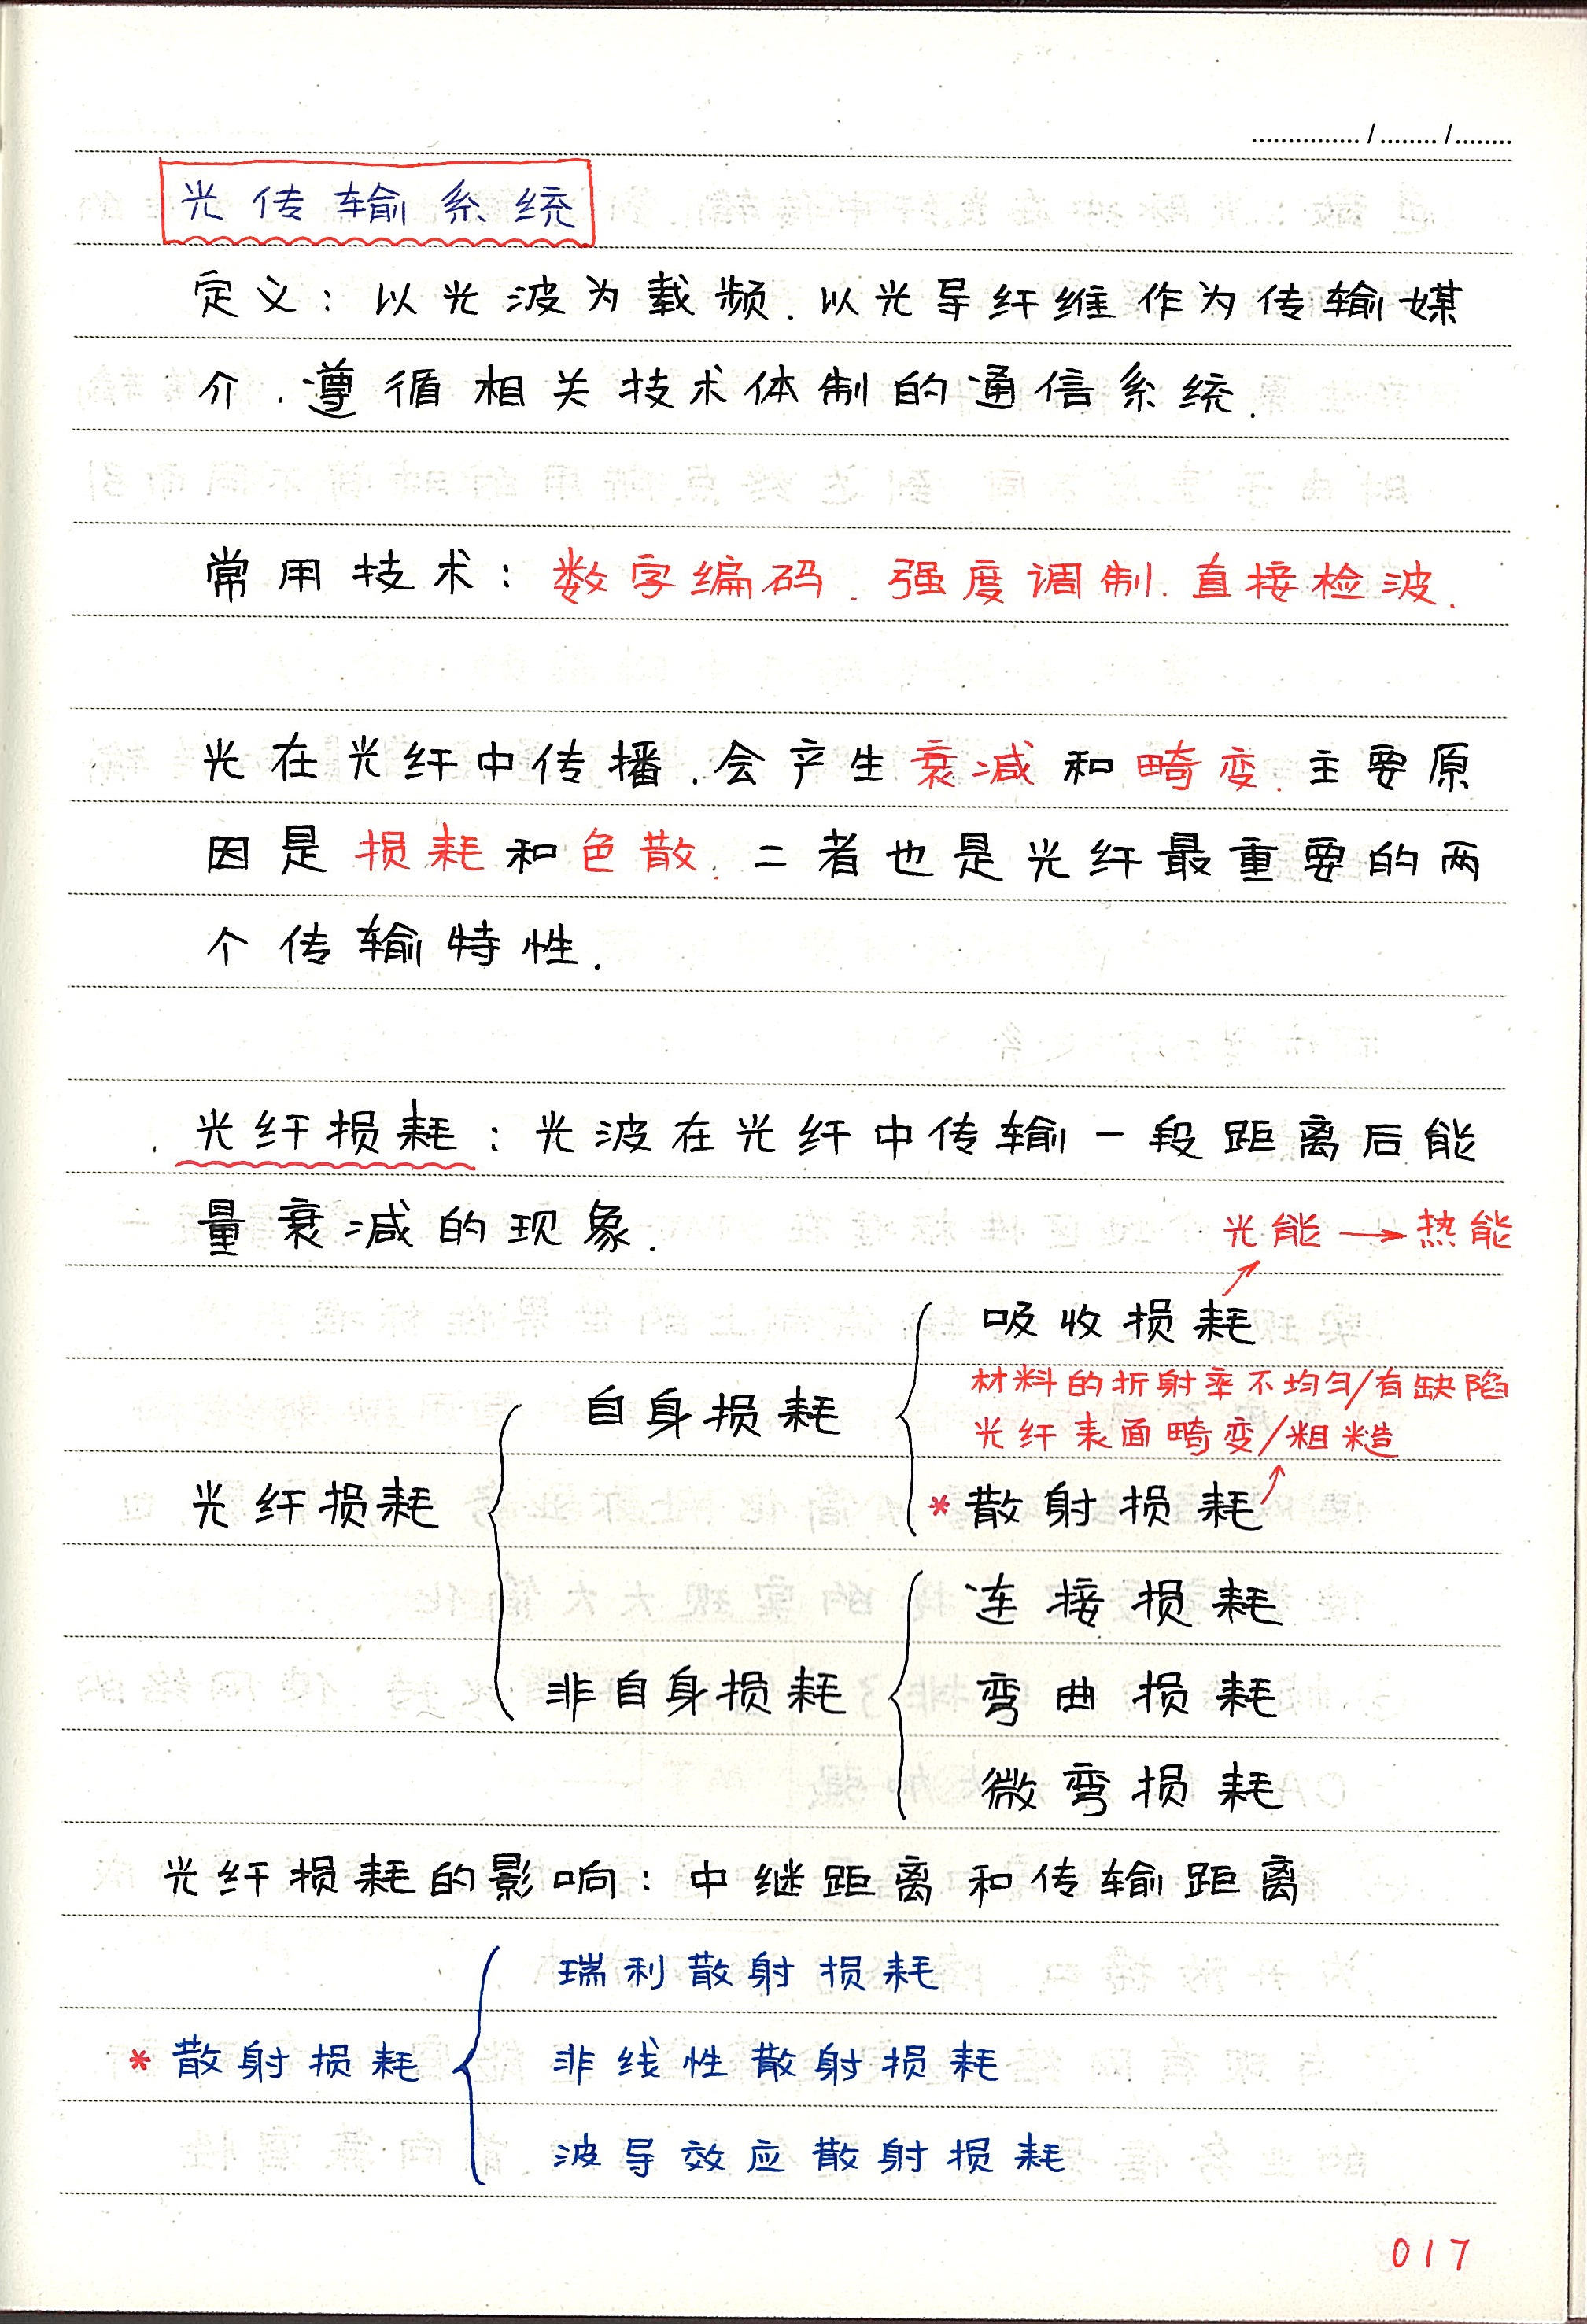 光传输系统
定义：以光波为载频．以光导纤维作为传输媒
介．遵循相关技术体制的通信系统．
常用技术：数字编码．强度调制．直接检波．
光在光纤中传播．会产生衰减和畸变．主要原
因是损耗和色散．二者也是光纤最重要的两
个传输特性．
光纤损耗：光波在光纤中传输一段距离后能
量衰减的现象．
光能→热能
吸收损耗
材料的折射率不均匀/有缺陷
自身损耗
光纤表面畸变/粗糙
光纤损耗
*散射损耗
连接损耗
非自身损耗
弯曲损耗
微弯损耗
光纤损耗的影响：中继距离和传输距离
瑞利散射损耗
*散射损耗
非线性散射损耗
波导效应散射损耗
017